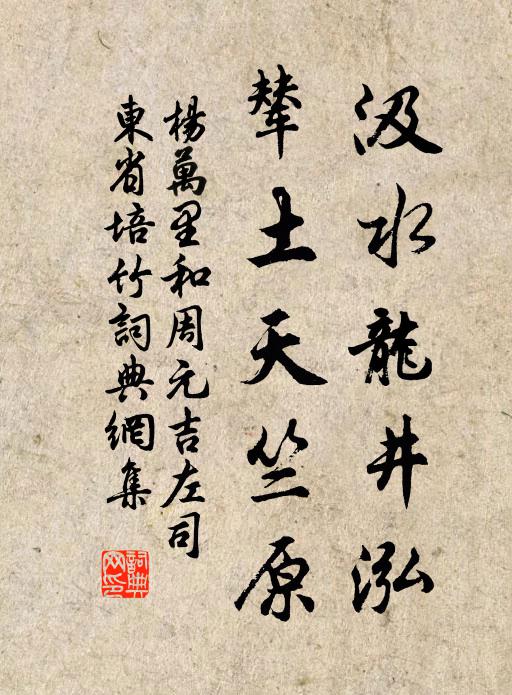 汲水龍井泓
輂土天竺原
楊萬里和周元吉左司
東省培竹詞典網集
詞典網印